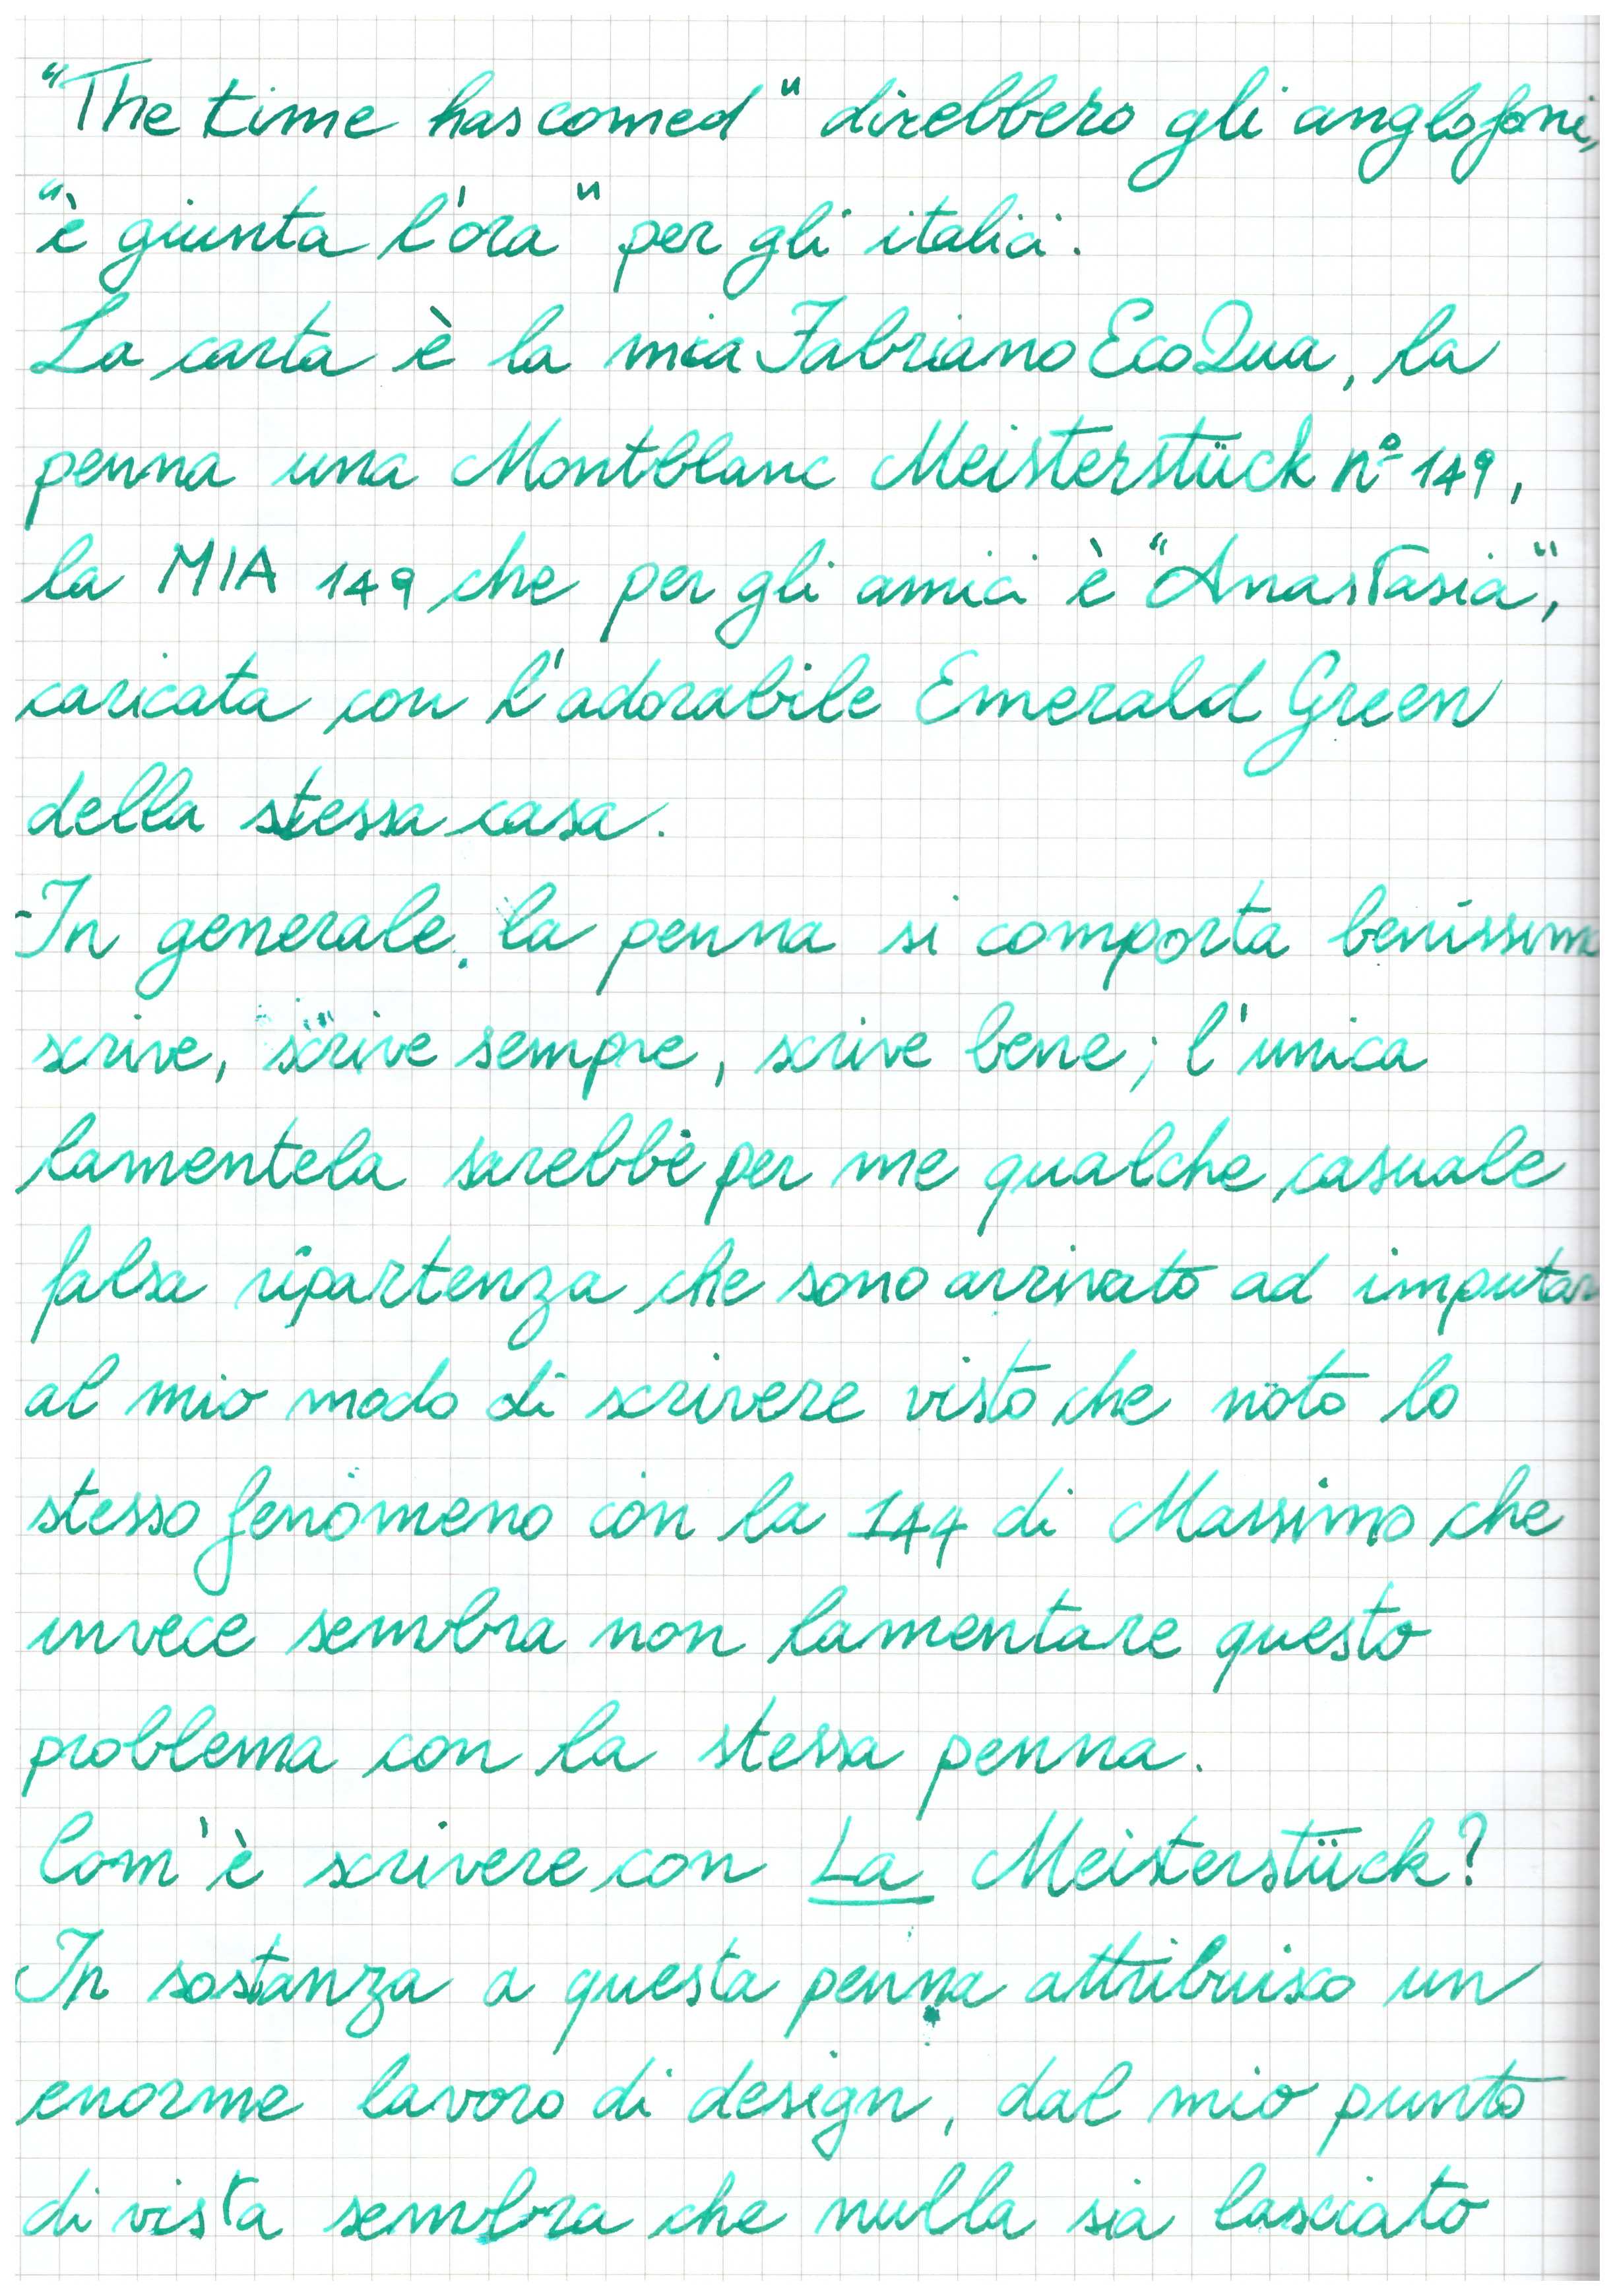 "The time has comed" direbbero gli anglofoni,
"è giunta l'ora" per gli italici.
La carta è la mia Fabriano EcoQua, la
penna una Montblanc Meisterstück n° 149,
la MIA 149 che per gli amici è "Anastasia",
caricata con l'adorabile Emerald Green
della stessa casa.
In generale, la penna si comporta benissimo
scrive, scrive sempre, scrive bene; l'unica
lamentela sarebbe per me qualche casuale
falsa ripartenza che sono arrivato ad imputar
al mio modo di scrivere visto che noto lo
stesso fenomeno con la 144 di Massimo che
invece sembra non lamentare questo
problema con la stessa penna.
Com'è scrivere con La Meisterstück?
In sostanza a questa penna attribuisco un
enorme lavoro di design, dal mio punto
di vista sembra che nulla sia lasciato